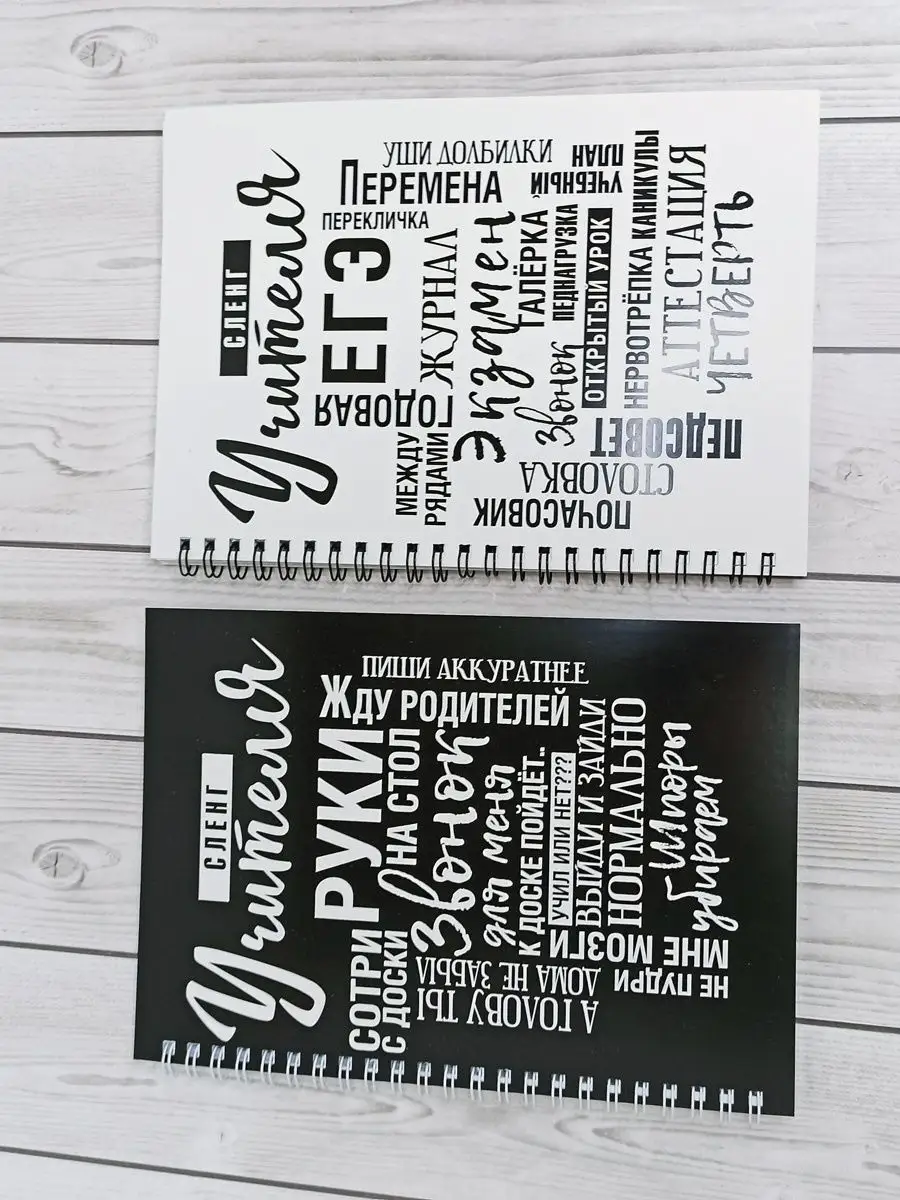 СЛЕНГ
Учителя
УШИ ДОЛБИЛКИ
ПЕРЕМЕНА
ПЕРЕКЛИЧКА
ЕГЭ
ГОДОВАЯ
ЖУРНАЛ
МЕЖДУ
РЯДАМИ
Экзамен
УЧЕБНЫЙ
ПЛАН
ГАЛЁРКА
Звонок
ПЕДНАГРУЗКА
ОТКРЫТЫЙ УРОК
НЕРВОТРЁПКА КАНИКУЛЫ
АТТЕСТАЦИЯ
ЧЕТВЕРТЬ
ПЕДСОВЕТ
СТОЛОВКА
ПОЧАСОВИК
СЛЕНГ
Учителя
ПИШИ АККУРАТНЕЕ
ЖДУ РОДИТЕЛЕЙ
РУКИ
НА СТОЛ
СОТРИ
С ДОСКИ
Звонок
для меня
К ДОСКЕ ПОЙДЁТ..
УЧИЛ ИЛИ НЕТ???
ВЫЙДИ И ЗАЙДИ
НОРМАЛЬНО
Шпоры
убираем
НЕ ПУДРИ
МНЕ МОЗГИ
А ГОЛОВУ ТЫ
ДОМА НЕ ЗАБЫЛ